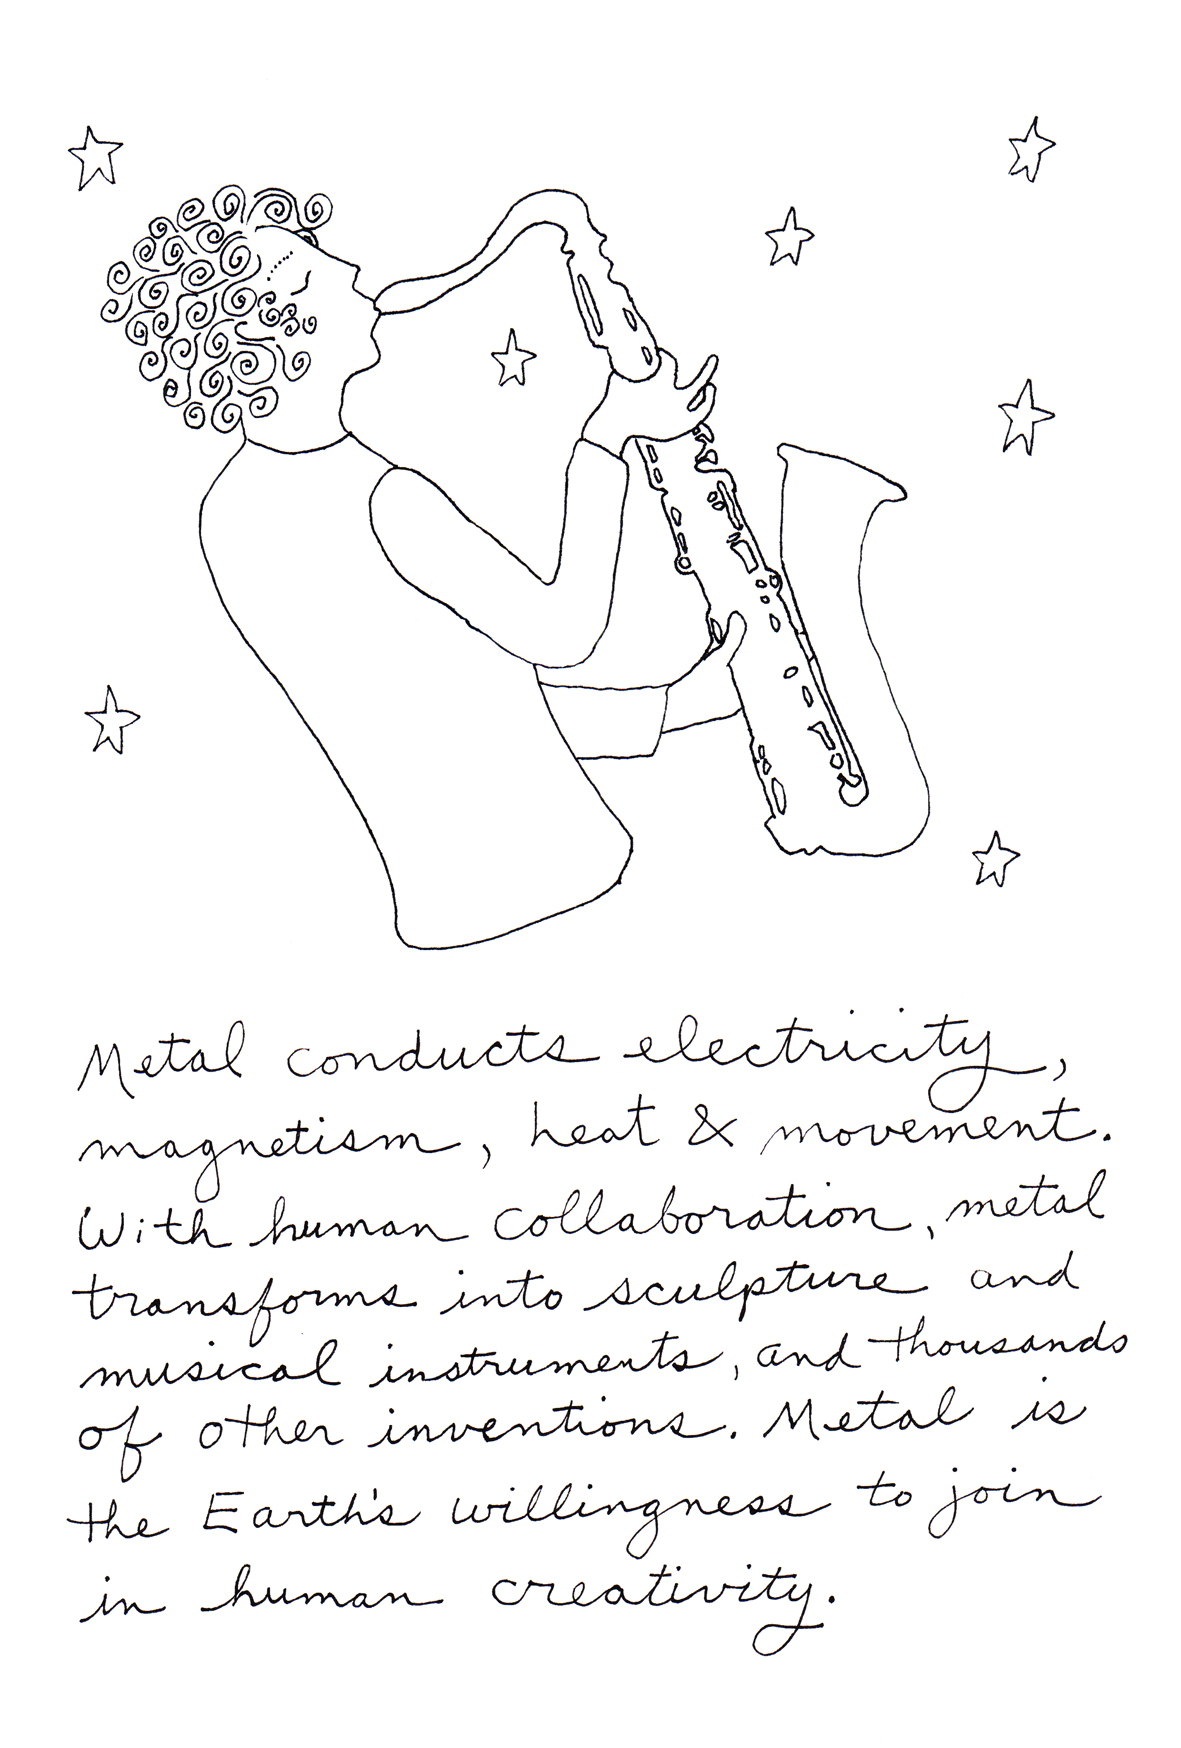 Metal conducts electricity,
magnetism, heat & movement.
With human collaboration, metal
transforms into sculpture and
musical instruments, and thousands
of other inventions. Metal is
the Earth's willingness to join
in human creativity.